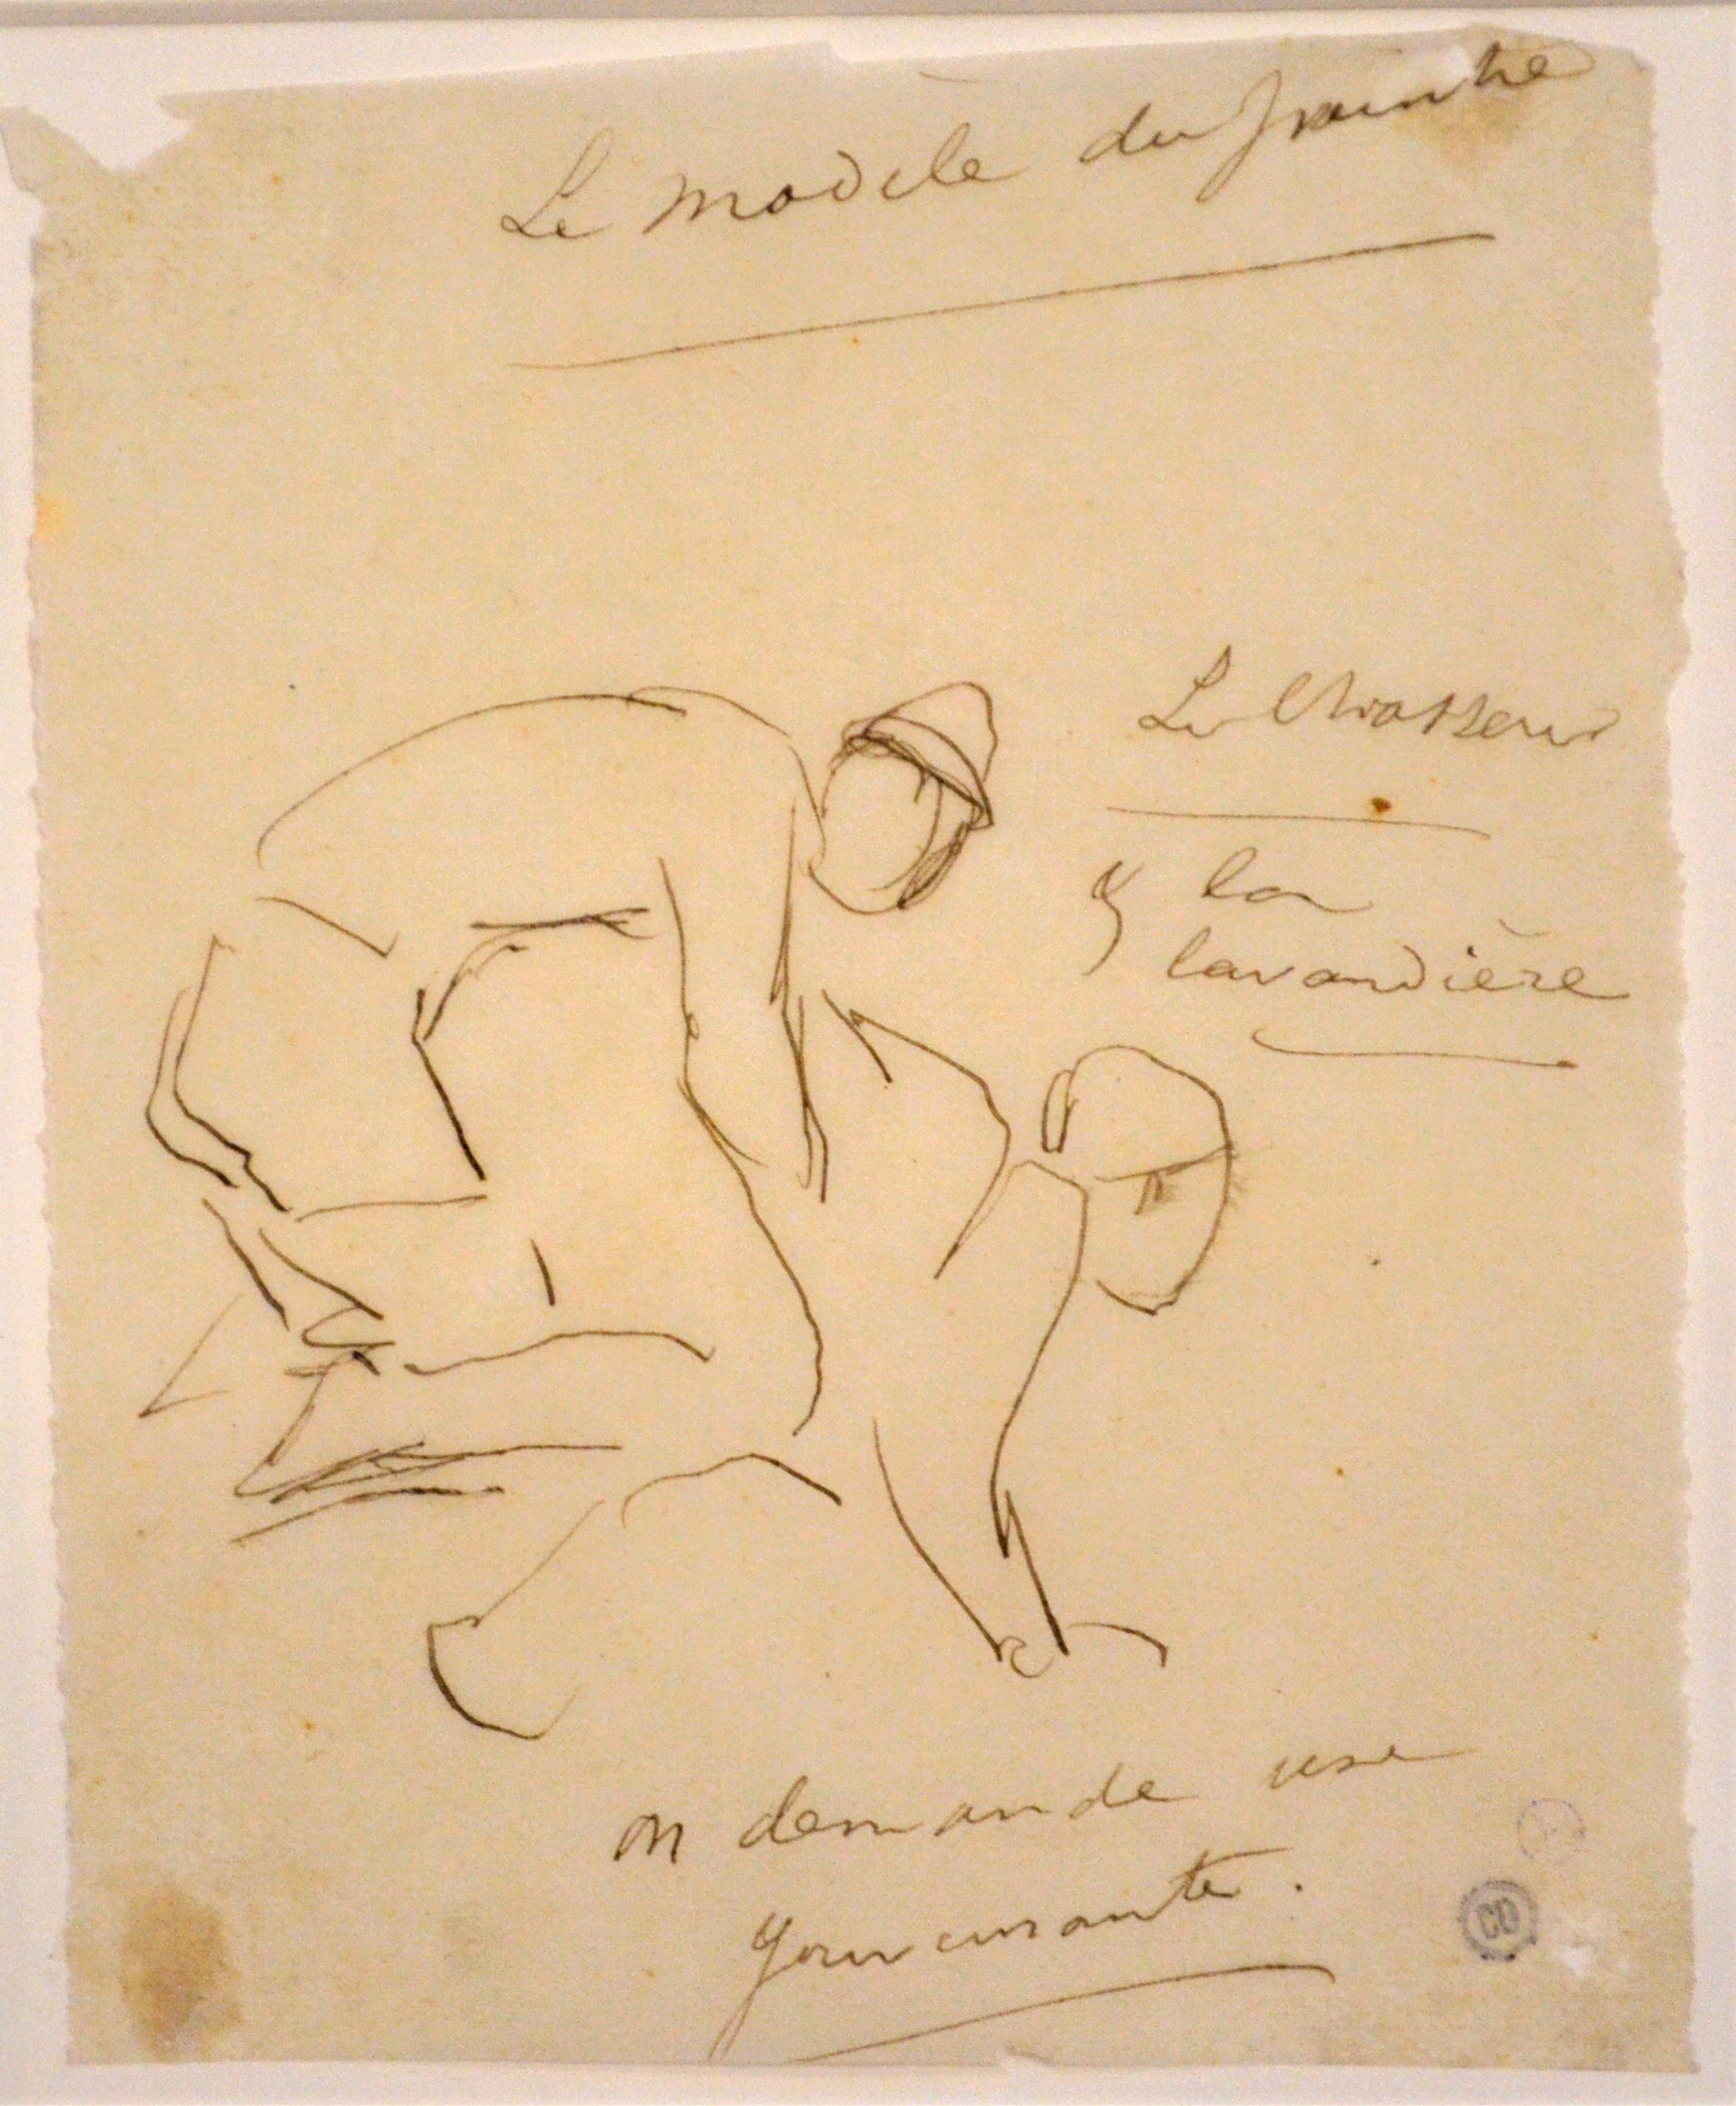 Le modèle du peintre
Le Chasseur
& la
lavandière
on demande une
gouvernante.
CD